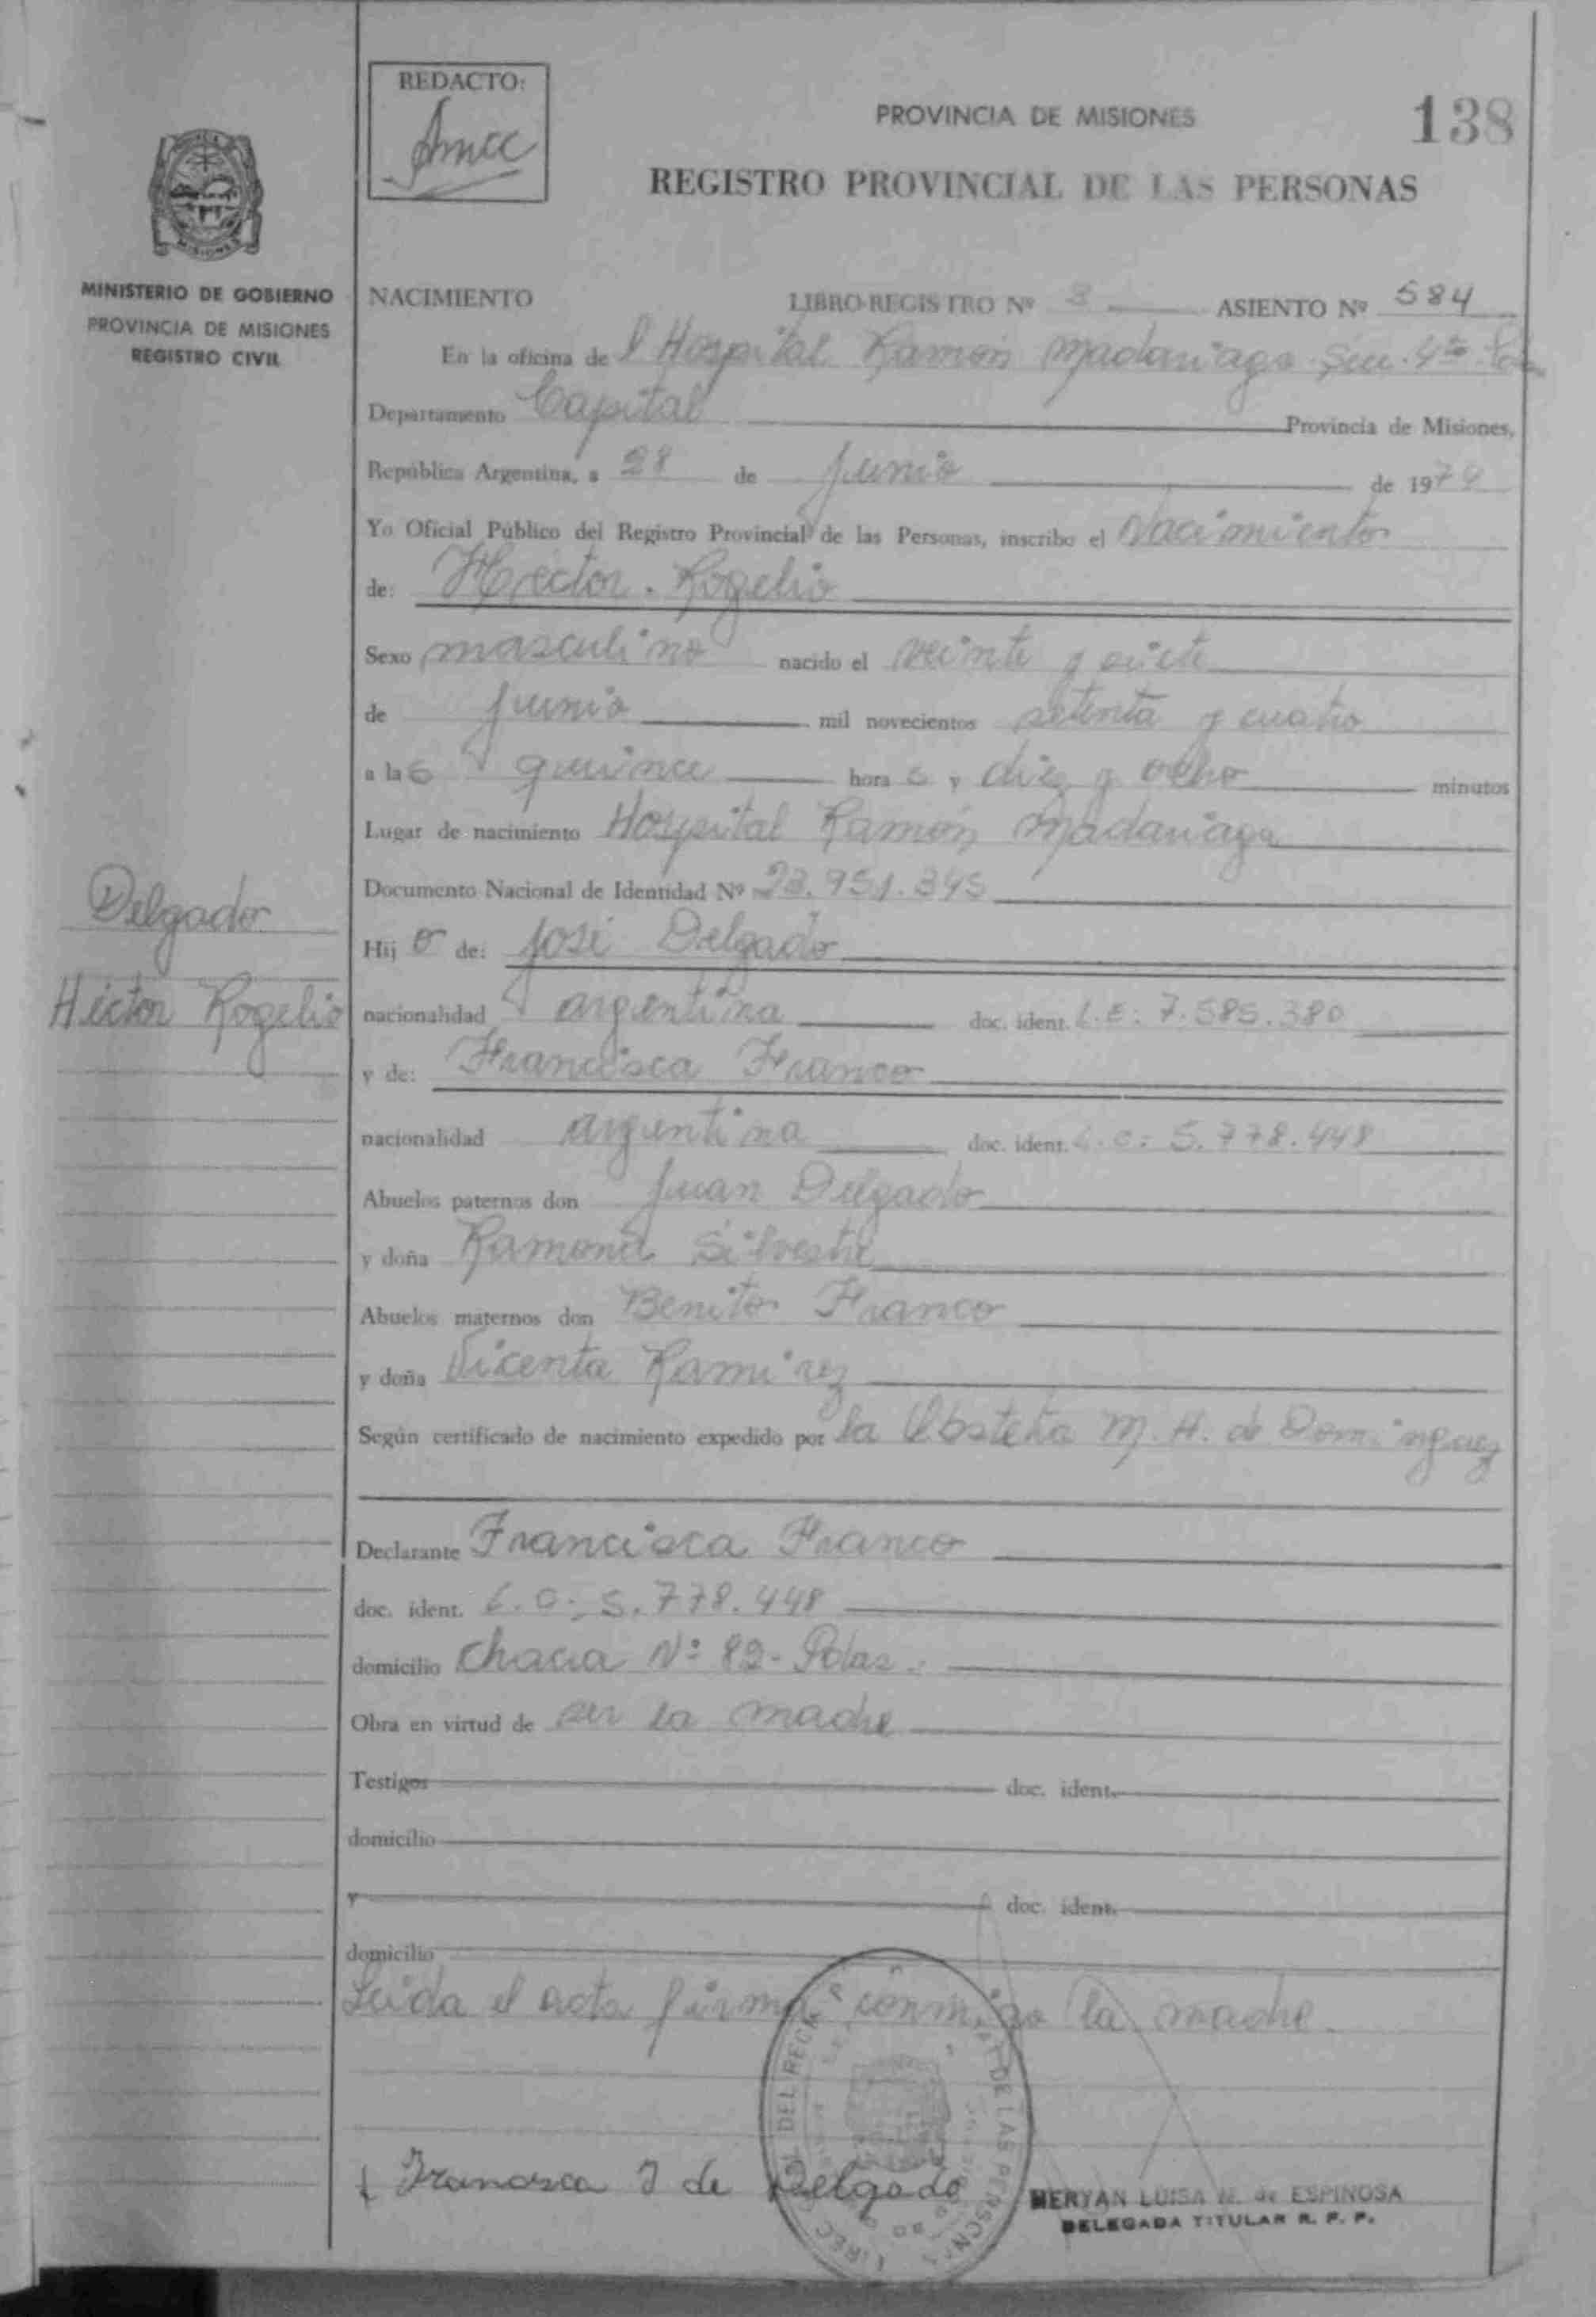 REDACTO:
PROVINCIA DE MISIONES
138
REGISTRO PROVINCIAL DE LAS PERSONAS
MISIONES
MINISTERIO DE GOBIERNO
PROVINCIA DE MISIONES
REGISTRO CIVIL
NACIMIENTO LIBRO-REGISTRO Nº 3 ASIENTO Nº 584
En la oficina de l Hospital Ramón Madariaga Secc. 4ta
Departamento Capital Provincia de Misiones,
República Argentina, a 28 de Junio de 1974
Yo Oficial Público del Registro Provincial de las Personas, inscribo el Nacimiento
de: Héctor. Rogelio
Sexo masculino nacido el veinte y siete
de Junio mil novecientos setenta y cuatro
a las quince horas y diez y ocho minutos
Lugar de nacimiento Hospital Ramón Madariaga
Documento Nacional de Identidad Nº 23.951.395
Delgado
Héctor Rogelio
Hijo de: José Delgado
nacionalidad argentina doc. ident. L.E: 7.585.380
y de: Francisca Franco
nacionalidad argentina doc. ident. L.C: 5.778.448
Abuelos paternos don Juan Delgado
y doña Ramona Silvestre
Abuelos maternos don Benito Franco
y doña Vicenta Ramirez
Según certificado de nacimiento expedido por la Obstetra M. H. de Dominguez
Declarante Francisca Franco
doc. ident. L.C: 5.778.448
domicilio Chacra Nº 82- Sdas.
Obra en virtud de ser la madre
Testigos doc. ident.
domicilio
y doc. ident.
domicilio
Leida el acta firma conmigo la madre.
Francisca F de Delgado
MERYAN LUISA M. de ESPINOSA
DELEGADA TITULAR R. P. P.